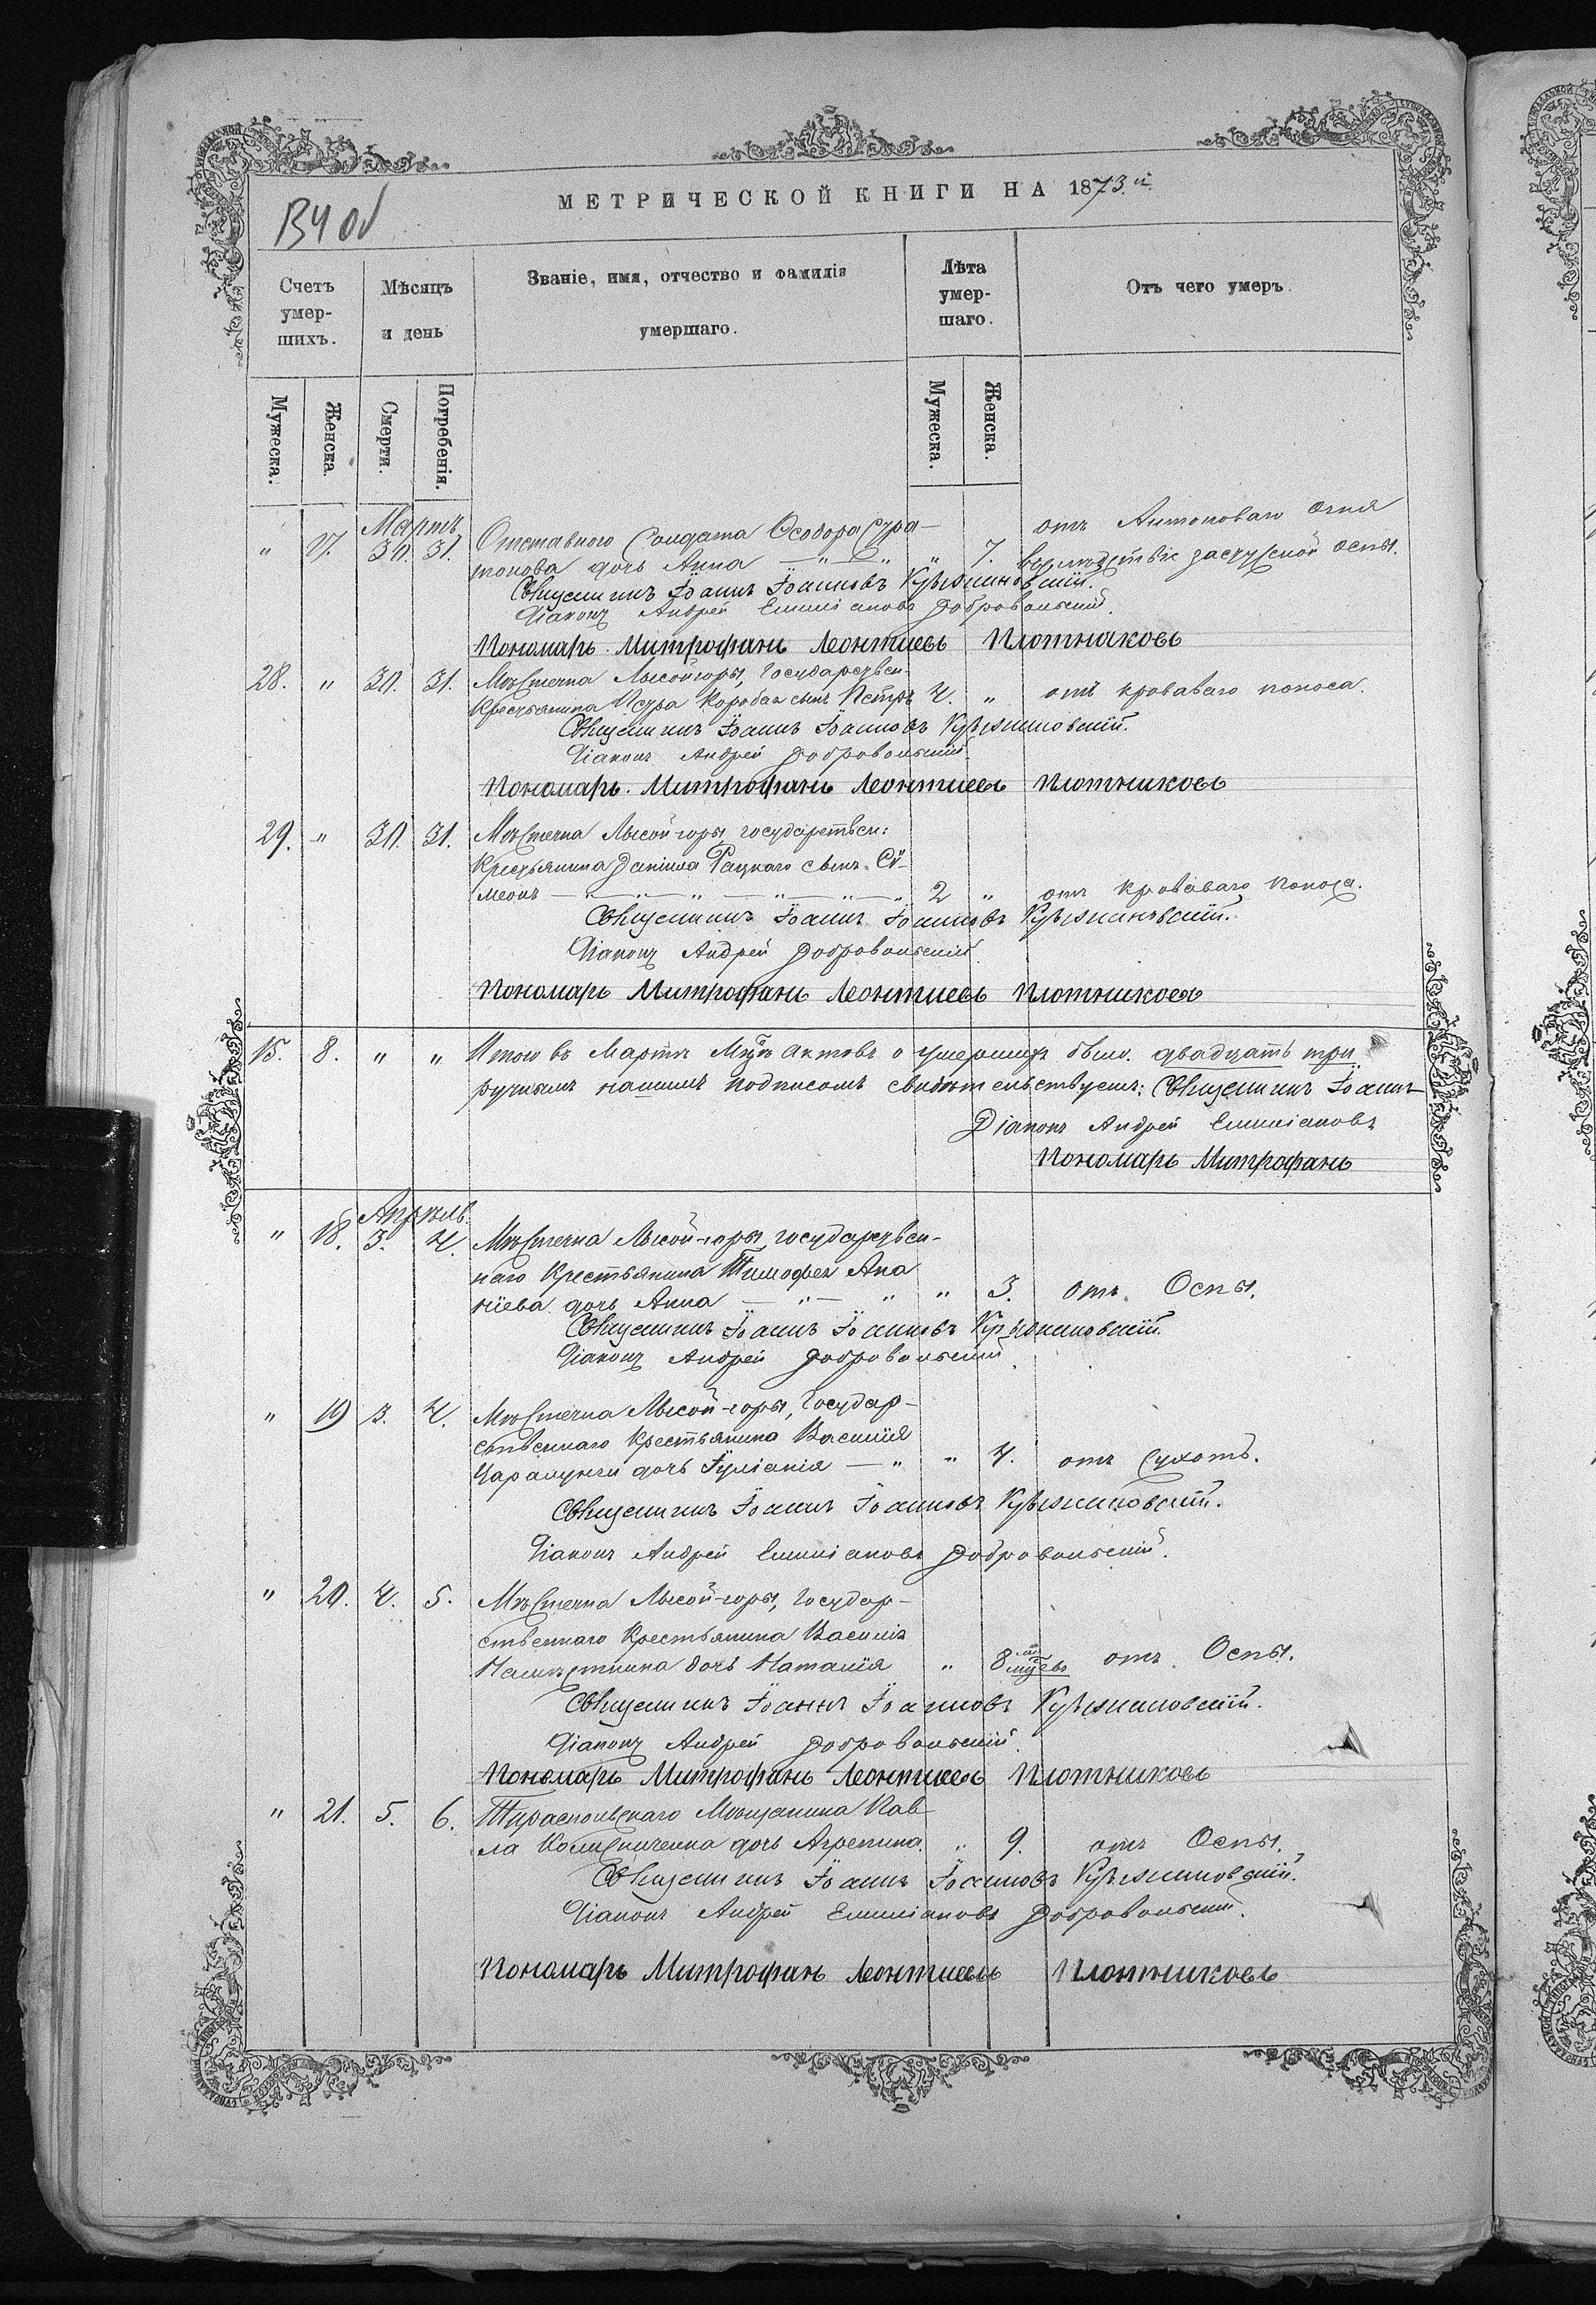 МЕТРИЧЕСКОЙ КНИГИ НА 1873.й
1340д
Счетъ умер-шихъ.
Мѣсяцъ и день
Званіе, имя, отчество и фамилія умершаго.
Лѣта умер-шаго.
Отъ чего умеръ.
Мужеска.
Женска.
Смерти.
Погребенія.
Мужеска.
Женска.
Мартъ
" 17. 30. 31. Отставного Солдата Ѳеодора Сура- отъ Антоноваго огня
дочь Анна — " — " " 7. вслѣдствіе оспы.
Священникъ Іоаннъ Іоанновъ
Діаконъ Андрей Емиліановъ Добровольскій.
Пономарь Митрофанъ Леонтиевъ Плотниковъ
28. " 30. 31. Мѣстечка Лысой-горы, государствен-
Крестьянина Петра Коробка сынъ Петръ 4. " отъ кроваваго поноса.
Священникъ Іоаннъ Іоанновъ
Діаконъ Андрей Добровольскій
Пономарь Митрофанъ Леонтиевъ Плотниковъ
29. " 30. 31. Мѣстечка Лысой-горы, государствен:
Крестьянина Даніила Рацкаго сынъ Сѵ-
меонъ — " — " — " — " — " 2 " отъ кроваваго поноса.
Священникъ Іоаннъ Іоанновъ
Діаконъ Андрей Добровольскій
Пономарь Митрофанъ Леонтиевъ Плотниковъ
15. 8. " " Итого въ Мартѣ Мцѣ актовъ о умершихъ было двадцать три
нашимъ подписомъ свидѣтельствуемъ: Священникъ Іоаннъ
Діаконъ Андрей Емиліановъ
Пономарь Митрофанъ
Апрѣль.
" 18. 3. 4. Мѣстечка Лысой-горы государствен-
наго Крестьянина Тимофея Ана
ніева дочь Анна — " — " " 3. отъ Оспы.
Священникъ Іоаннъ Іоанновъ
Діаконъ Андрей Добровольскій
" 19 3. 4. Мѣстечка Лысой-горы, Государ-
ственнаго Крестьянина Василія
дочь Іуліанія — " " 4. отъ Сухотъ.
Священникъ Іоаннъ Іоанновъ
Діаконъ Андрей Емиліановъ Добровольскій.
" 20. 4. 5. Мѣстечка Лысой-горы, Государ-
ственнаго Крестьянина Василія
дочь Наталія " 8 мцевъ отъ Оспы.
Священникъ Іоаннъ Іоанновъ
Діаконъ Андрей Добровольскій
Пономарь Митрофанъ Леонтиевъ Плотниковъ
" 21. 5. 6. Тираспольскаго Мѣщанина Пав-
ла Колисниченка дочь Агрепина. " 9. отъ Оспы.
Священникъ Іоаннъ Іоанновъ
Діаконъ Андрей Емиліановъ Добровольскій.
Пономарь Митрофанъ Леонтиевъ Плотниковъ